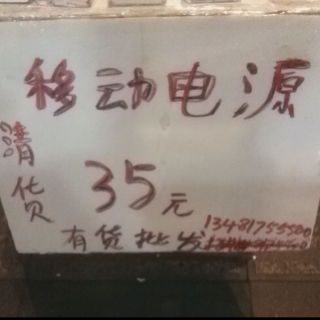 移动电源
清货
35元
有货批发
13481755500